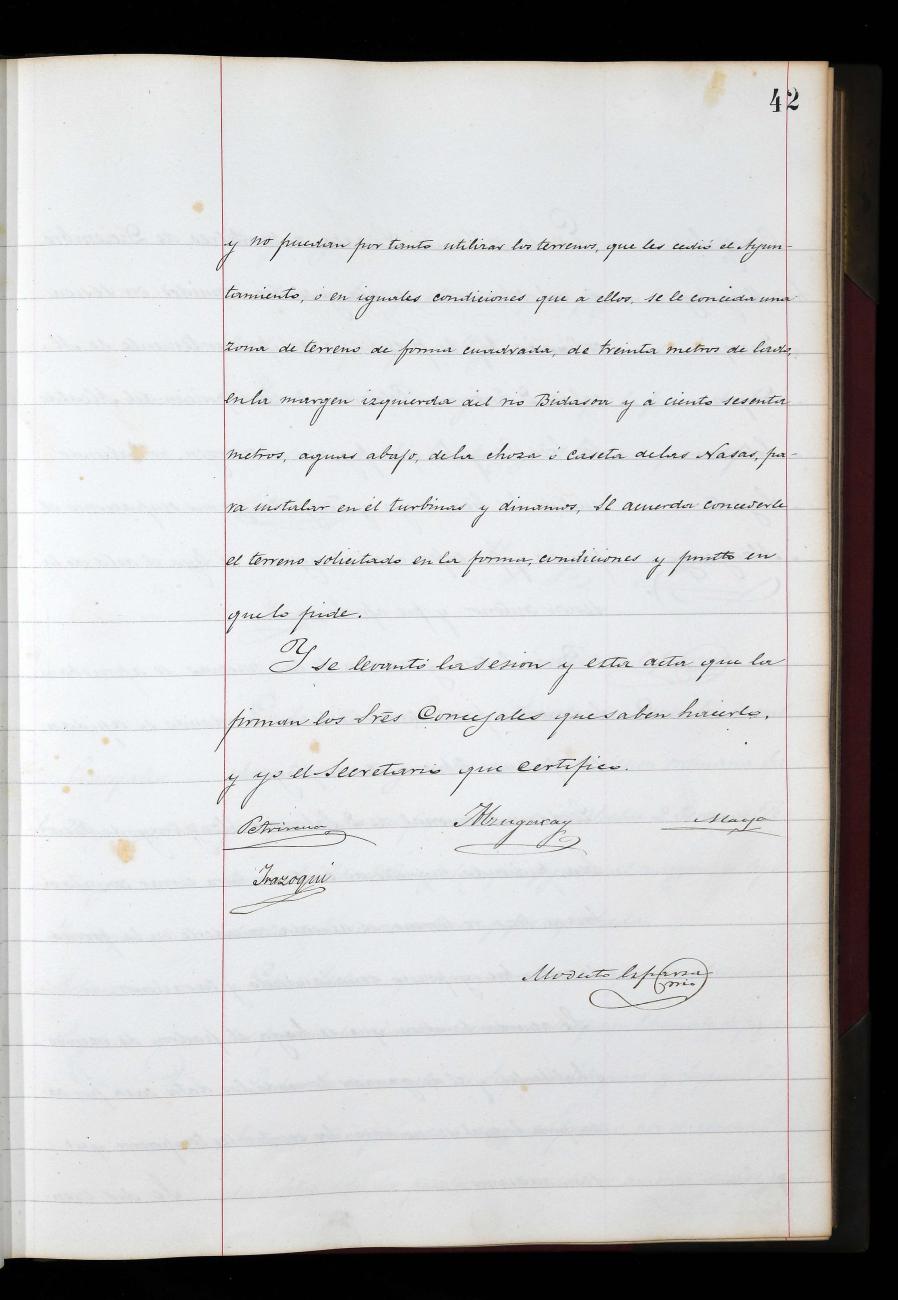 42
y no puedan por tanto utilizar los terrenos, que les cedió el Ayun-
tamiento, ó en iguales condiciones que a ellos, se le conceda una
zona de terreno de forma cuadrada, de treinta metros de lado,
en la margen izquierda del rio Bidasoa y á ciento sesenta
metros, aguas abajo, de la choza ó caseta de las Nasas, pa-
ra instalar en él turbinas y dinamos, Se acuerda concederle
el terreno solicitado en la forma, condiciones y punto en
que lo pide.
Y se levantó la sesion y esta acta que la
firman los Sres Concejales que saben hacerlo,
y yo el Secretario que certifico.
Petrirena Maya
Irazoqui
Modesto Esparza